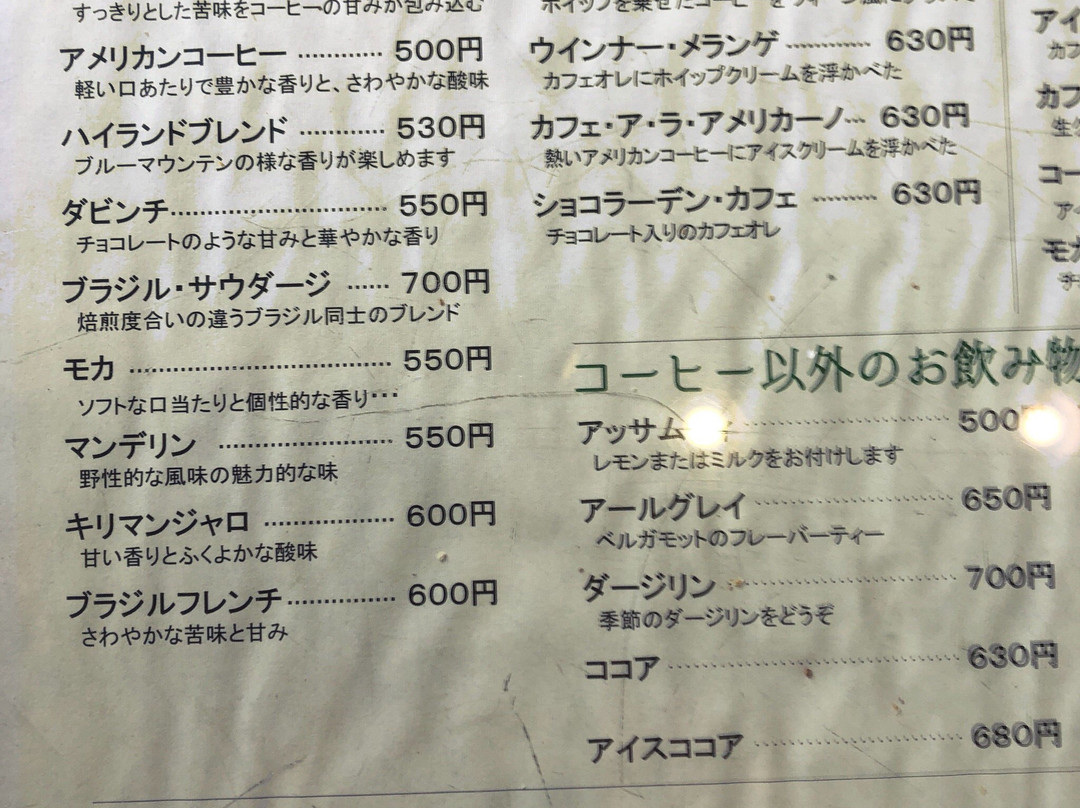 すっきりとした苦味をコーヒーの甘みが包み込む
アメリカンコーヒー ………… 500円
軽い口あたりで豊かな香りと、さわやかな酸味
ハイランドブレンド ………… 530円
ブルーマウンテンの様な香りが楽しめます
ダビンチ………………………… 550円
チョコレートのような甘みと華やかな香り
ブラジル・サウダージ …… 700円
焙煎度合いの違うブラジル同士のブレンド
モカ ……………………………… 550円
ソフトな口当たりと個性的な香り…
マンデリン …………………… 550円
野性的な風味の魅力的な味
キリマンジャロ ……………… 600円
甘い香りとふくよかな酸味
ブラジルフレンチ …………… 600円
さわやかな苦味と甘み
ウインナー・メランゲ ………… 630円
カフェオレにホイップクリームを浮かべた
カフェ・ア・ラ・アメリカーノ… 630円
熱いアメリカンコーヒーにアイスクリームを浮かべた
ショコラーデン・カフェ ……… 630円
チョコレート入りのカフェオレ
コーヒー以外のお飲み物
アッサム ………………………… 500
レモンまたはミルクをお付けします
アールグレイ …………………… 650円
ベルガモットのフレーバーティー
ダージリン ……………………… 700円
季節のダージリンをどうぞ
ココア …………………………… 630円
アイスココア …………………… 680円